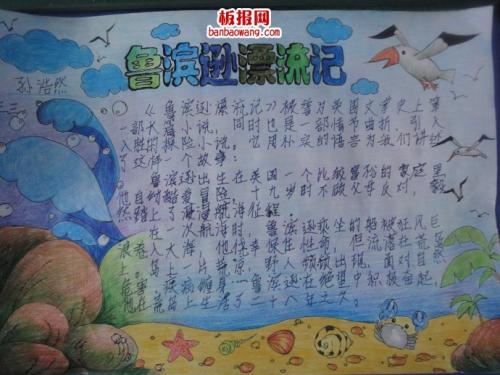 板报网
banbaowang.com
鲁滨逊漂流记
孙浩然
《鲁滨逊漂流记》被誉为英国文学史上第
一部长篇小说，同时也是一部情节曲折，引人
入胜的探险小说。它用朴实的语言为我们讲述
了这样一个故事：
鲁滨逊出生在英国一个比较富裕的家庭里
他自幼酷爱冒险，十九岁时不顾父母反对，毅
然踏上了漫漫航海征程。
在一次航海时，鲁滨逊乘坐的船被狂风巨
浪卷入大海，他侥幸保住性命，但流落在荒岛
上。岛上一片荒凉，野人频频出现，面对自然
在荒岛上生活了二十八年之久。